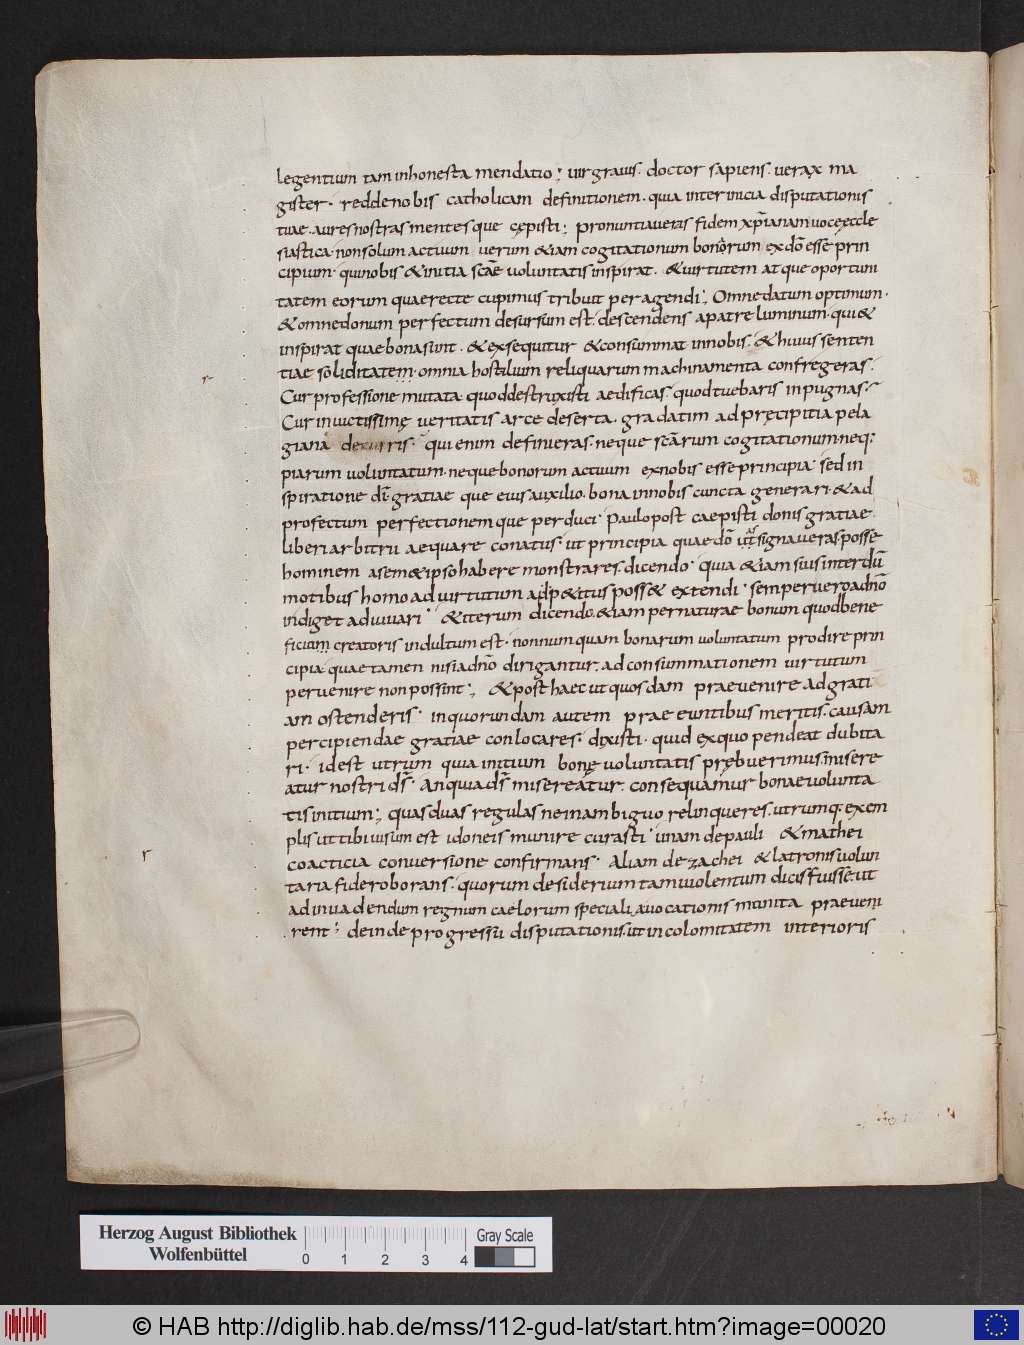 legentium tam inhonesta mendatio; uir grauis. doctor sapiens. uerax ma
gister. redde nobis catholicam definitionem. quia inter inicia disputationis
tuae. aures nostras mentesque cępisti; pronuntiaueras fidem xp̄ianam uoce eccle
siastica. non solum actuum uerum & iam cogitationum bonorum ex dō esse prin
cipium. qui nobis & initia scāe uoluntatis inspirat. & uirtutem atque oportuni
tatem eorum quae recte cupimus tribuit peragendi; Omne datum optimum.
& omne donum perfectum desursum est. descendens a patre luminum. qui &
inspirat quae bona sunt. & exsequitur & consummat in nobis. & huius senten
tiae soliditatem. omnia hostilium reliquarum machinamenta confregeras.
Cur professione mutata quod destruxisti aedificas. quod tuebaris inpugnas;
Cur inuictissimę ueritatis arce deserta. gradatim ad pręcipitia pela
giana decurris. qui enim definieras. neque scārum cogitationum neq;
piarum uoluntatum. neque bonorum actuum ex nobis esse principia. sed in
spiratione dī gratiae que eius auxilio. bona in nobis cuncta generari. & ad
profectum perfectionemque perduci. Paulo post caepisti donis gratiae
liberi arbitrii aequare conatus. ut principia quae dō signaueras. posse
hominem a sem&ipso habere monstrares. dicendo. quia &iam suis interdū
motibus homo ad uirtutum adp&itus poss& extendi. semper uero a dn̄o
indiget adiuuari. & iterum dicendo. &iam per naturae bonum quod bene
ficium creatoris indultum est. nonnumquam bonarum uoluntatum prodire prin
cipia. quae tamen nisi a dn̄o dirigantur. ad consummationem uirtutum
peruenire non possint; & post haec ut quosdam praeuenire ad grati
am ostenderis. in quorundam autem praeeuntibus meritis. causam
percipiendae gratiae conlocares. dixisti. quid ex quo pendeat dubita
ri. id est utrum quia initium bonę uoluntatis prębuerimus. misere
atur nostri dś. An quia dś misereatur. consequamur bonae uolunta
tis initium; quas duas regulas ne in ambiguo relinqueres. utrumq; exem
plis ut tibi uisum est idoneis munire curasti. unam de pauli & mathei
coacticia conuersione confirmans. Aliam de zachei & latronis uolun
taria fide roborans. quorum desiderium tam uiolentum dicis fuisse. ut
ad inuadendum regnum caelorum speciali auocationis munita praeueni
rent; deinde progressu disputationis. ut incolomitatem interioris
r
r
Herzog August Bibliothek
Wolfenbüttel
0 1 2 3 4
Gray Scale
© HAB http://diglib.hab.de/mss/112-gud-lat/start.htm?image=00020